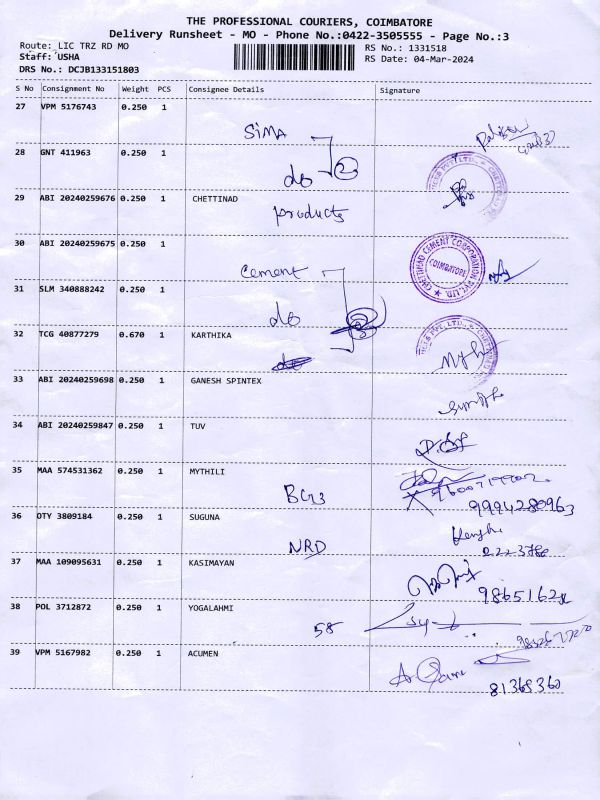 THE PROFESSIONAL COURIERS, COIMBATORE
Delivery Runsheet - MO - Phone No.:0422-3505555 - Page No.:3
Route: LIC TRZ RD MO RS No.: 1331518
Staff: USHA RS Date: 04-Mar-2024
DRS No.: DCJB133151803
S No Consignment No Weight PCS Consignee Details Signature
27 VPM 5176743 0.250 1
SIMA
28 GNT 411963 0.250 1
do
29 ABI 20240259676 0.250 1 CHETTINAD
products
30 ABI 20240259675 0.250 1
Cement
CHETTINAD CEMENT CORPORATION PVT. LTD.
COIMBATORE
31 SLM 340888242 0.250 1
do
32 TCG 40877279 0.670 1 KARTHIKA
33 ABI 20240259698 0.250 1 GANESH SPINTEX
34 ABI 20240259847 0.250 1 TUV
35 MAA 574531362 0.250 1 MYTHILI
9994280963
36 OTY 3809184 0.250 1 SUGUNA
NRD
37 MAA 109095631 0.250 1 KASIMAYAN
38 POL 3712872 0.250 1 YOGALAHMI
58
39 VPM 5167982 0.250 1 ACUMEN